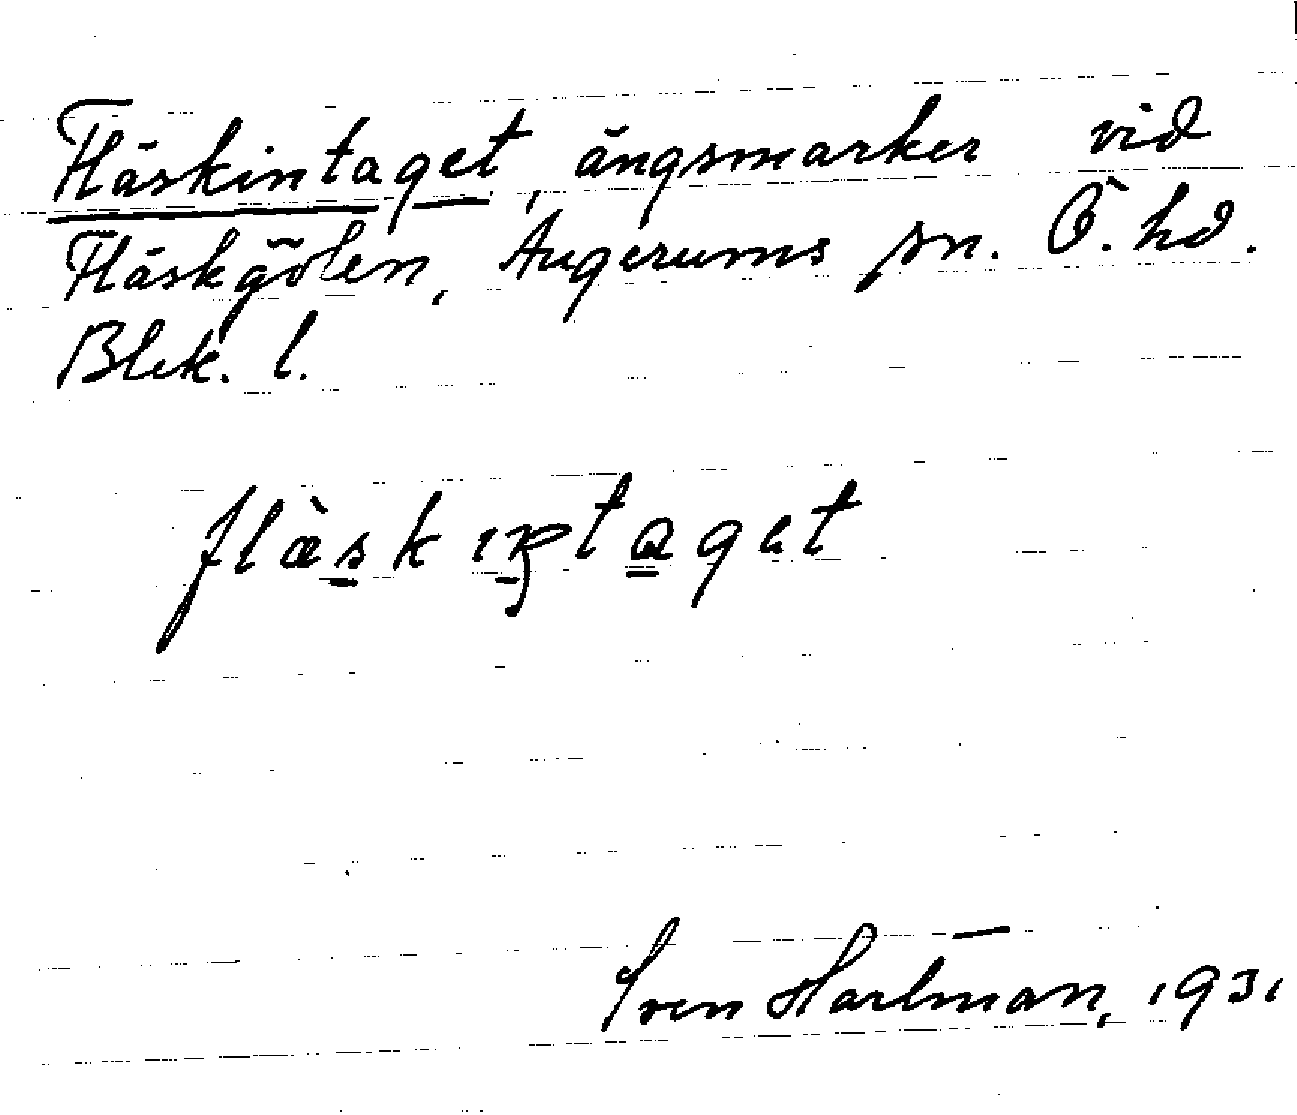 Fläskintaget, ängsmarker vid
Fläskgölen, Augerums sn. Ö. hd.
Blek. l.
flæ̀skıntaget
Sven Hartman, 1931